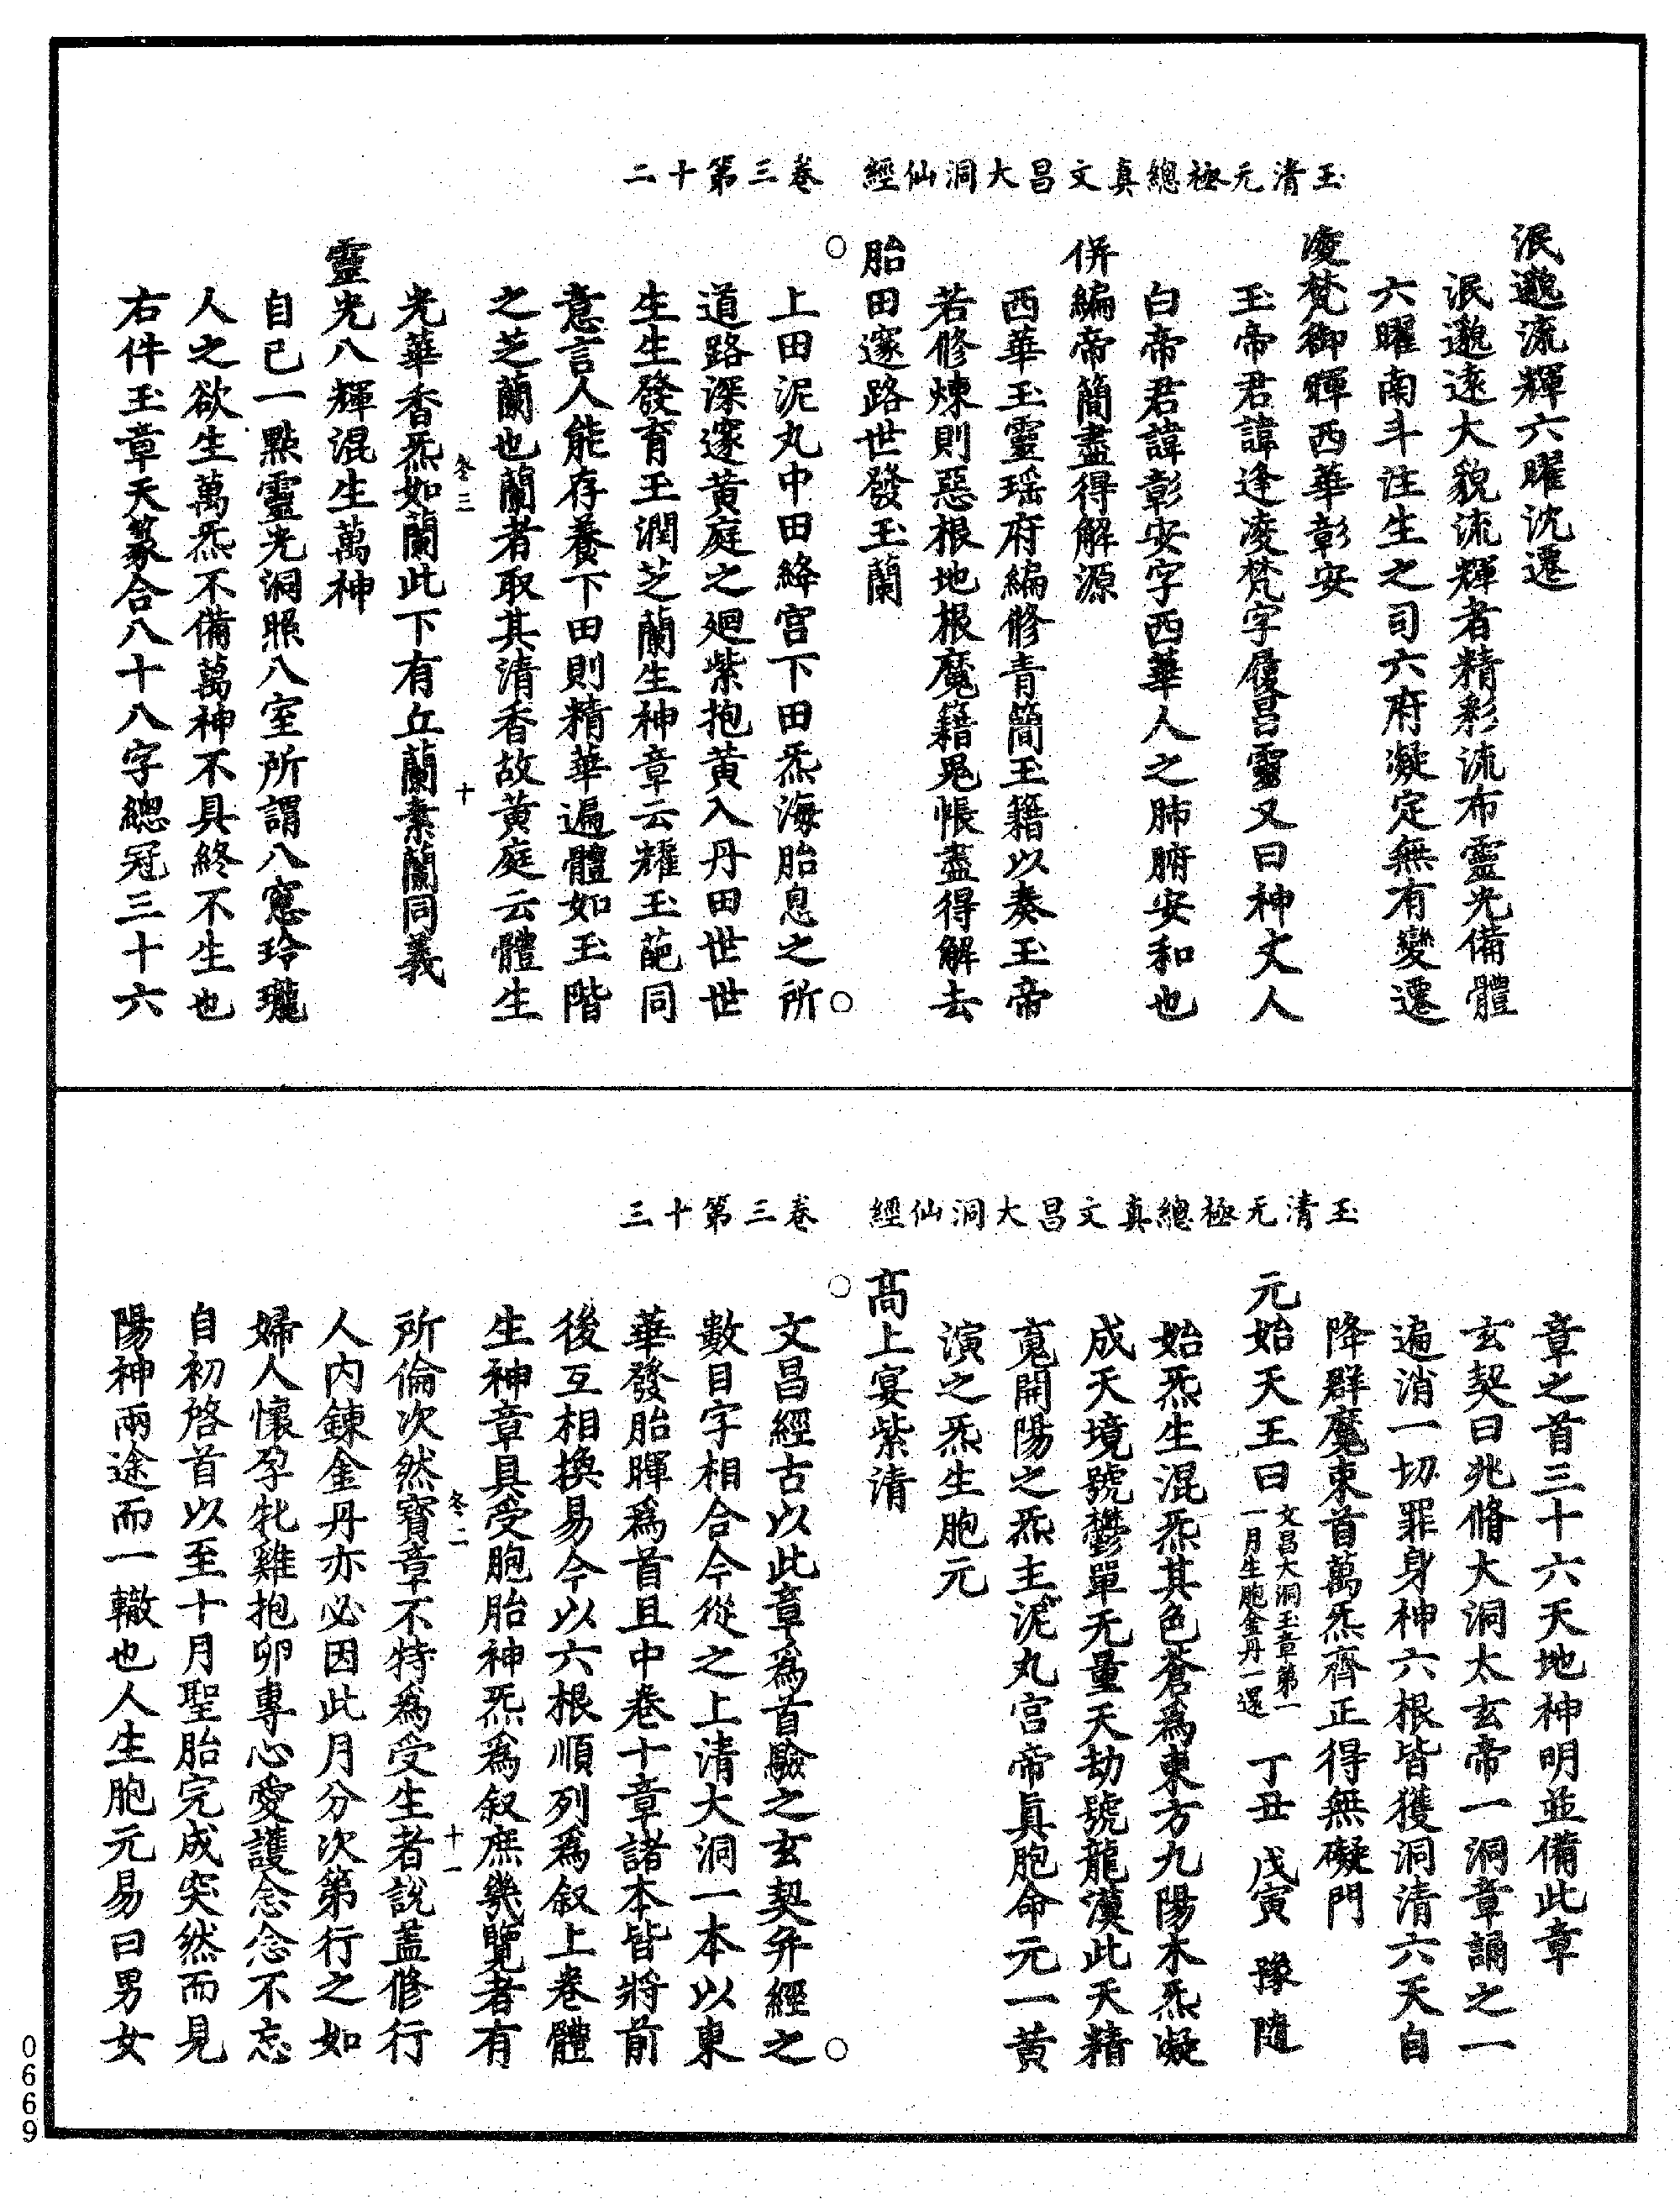 玉清无極總真文昌大洞仙經 卷三第十二
泯邈流輝六曜沈遷
泯邈遠大貌流輝者精彩流布靈光備體
六曜南斗注生之司六府凝定無有變遷
凌梵御暉西華彰安
玉帝君諱逢凌梵字履昌靈又曰神丈人
白帝君諱彰安字西華人之肺腑安和也
併編帝簡盡得解源
西華玉靈瑶府編修青簡玉籍以奏玉帝
若修煉則惡根地根魔籍鬼帳盡得解去
胎田邃路世發玉蘭
上田泥丸中田絳宮下田炁海胎息之所
道路深邃黃庭之廻紫抱黃入丹田世世
生生發育玉潤芝蘭生神章云耀玉葩同
意言人能存養下田則精華遍體如玉階
之芝蘭也蘭者取其清香故黃庭云體生
冬三 十
光華香炁如蘭此下有丘蘭素蘭同義
靈光八輝混生萬神
自己一點靈光洞照八室所謂八窓玲瓏
人之欲生萬炁不備萬神不具終不生也
右件玉章天篆合八十八字總冠三十六
玉清无極總真文昌大洞仙經 卷三第十三
章之首三十六天地神明並備此章
玄契曰兆脩大洞太玄帝一洞章誦之一
遍消一切罪身神六根皆獲洞清六天自
降群魔束首萬炁齊正得無礙門
元始天王曰 文昌大洞玉章第一 一月生胞金丹一還 丁丑 戊寅 豫 隨
始炁生混炁其色蒼爲東方九陽木炁凝
成天境號鬱單无量天劫號龍漢此天精
䰟開陽之炁主泥丸宮帝眞胞命元一黃
演之炁生胞元
髙上宴紫清
文昌經古以此章爲首驗之玄契并經之
數目字相合今從之上清大洞一本以東
華發胎暉爲首且中巻十章諸本皆將前
後互相換易今以六根順列爲叙上巻體
生神章具受胞胎神炁爲叙庶幾覽者有
冬二 十一
所倫次然寶章不特爲受生者說盖修行
人内鍊金丹亦必因此月分次第行之如
婦人懷孕牝雞抱卵專心愛護念念不忘
自初啓首以至十月聖胎完成突然而見
陽神兩途而一轍也人生胞元易曰男女
0669